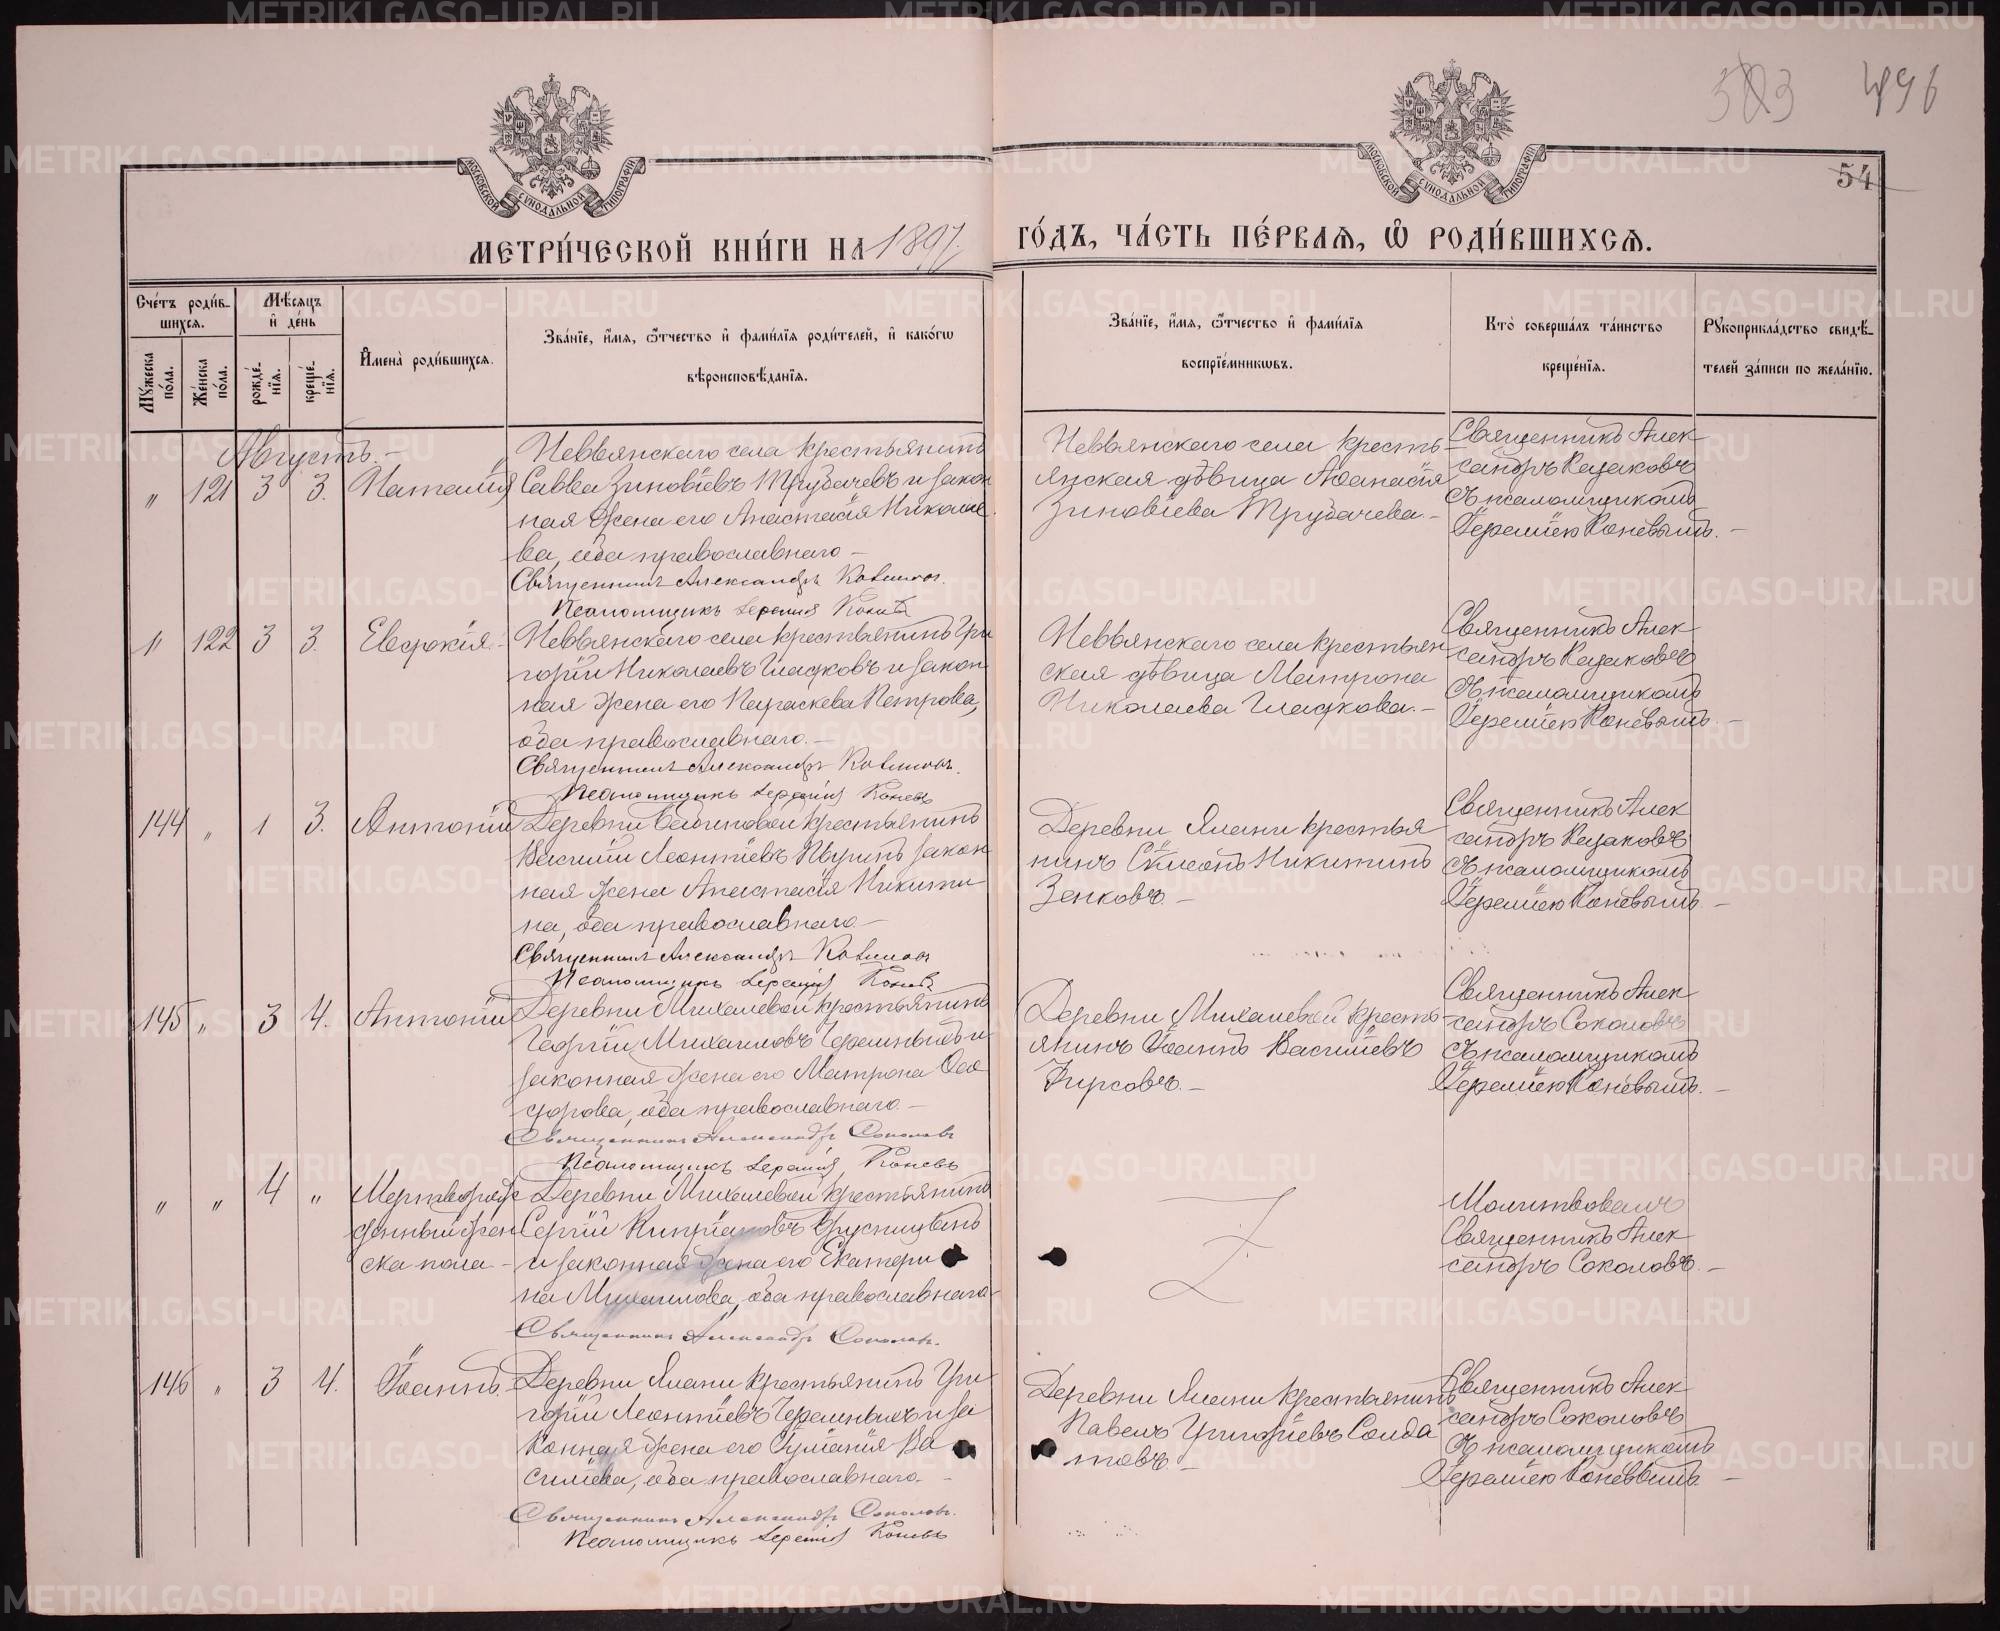 523 496
54
МОСКОВСКОЙ СѴНОДАЛЬНОЙ ТИПОГРАФІИ
МОСКОВСКОЙ СѴНОДАЛЬНОЙ ТИПОГРАФІИ
МЕТРИ́ЧЕСКОЙ КНИ́ГИ НА 1897 ГО́ДЪ, ЧА́СТЬ ПЕ́РВАЯ, Ѡ РОДИ́ВШИХСЯ.
Сче́тъ роди́в-
шихся.
Мꙋжеска по́ла.
Же́нска по́ла.
Мѣ́сяцъ
и҆ де́нь
рожде́-
нїя.
креще́-
нїя.
И҆мена̀ роди́вшихся.
Зва́нїе, и҆́мя, ѻ҆́тчество и҆ фами́лїя роди́телей, и҆ како́гѡ
вѣроисповѣ́данїя.
Зва́нїе, и҆́мя, ѻ҆́тчество и҆ фами́лїя
воспрїе́мникѡвъ.
Кто̀ соверша́лъ та́инство
креще́нїя.
Рꙋкоприкла́дство свидѣ́-
телей за́писи по жела́нїю.
Августъ.-
" 121 3 3. Наталія
Невьянскаго села крестьянинъ
Савва Зиновіевъ Трубачевъ и закон
ная жена его Анастасія Николае
ва, оба православнаго -
Священникъ Александръ
Псаломщикъ Іеремія Коневъ
Невьянскаго села кресть-
янская дѣвица Аѳанасія
Зиновіева Трубачева.-
Священникъ Алек
сандръ Казаковъ
съ псаломщикомъ
Іереміею Коневымъ.-
" 122 3 3. Евдокія.
Невьянскаго села крестьянинъ Гри
горій Николаевъ Гладковъ и закон
ная жена его Параскева Петрова,
оба православнаго.-
Священникъ Александръ
Псаломщикъ Іеремія Коневъ
Невьянскаго села крестьян
ская дѣвица Матрона
Николаева Гладкова.-
Священникъ Алек
сандръ Казаковъ
съ псаломщикомъ
Іереміею Коневымъ.-
144 " 1 3. Антоній
Деревни крестьянинъ
Василій Леонтіевъ закон
ная жена Анастасія Никити
на, оба православнаго -
Священникъ Александръ
Псаломщикъ Іеремія Коневъ
Деревни Ялани крестья
нинъ Никитинъ
Зенковъ.-
Священникъ Алек
сандръ Казаковъ
съ псаломщикомъ
Іереміею Коневымъ.-
145 " 3 4. Антоній
Деревни Михалевой крестьянинъ
Георгій Михаиловъ Черемныхъ и
законная жена его Матрона Ѳео
дорова, оба православнаго.-
Священникъ Александръ Соколовъ
Псаломщикъ Іеремія Коневъ
Деревни Михалевой кресть-
янинъ Іоаннъ Васильевъ
Фирсовъ.-
Священникъ Алек
сандръ Соколовъ
съ псаломщикомъ
Іереміею Коневымъ.-
" " 4 " Мертворож
денный жен
ска пола -
Деревни Михалевой крестьянинъ
Сергій Кипріановъ
и законная жена его Екатери
на Михаилова, оба православнаго-
Священникъ Александръ Соколовъ.
Молитвовалъ
Священникъ Алек
сандръ Соколовъ.-
146 " 3 4. Іоаннъ.
Деревни Ялани крестьянинъ Гри
горій Леонтіевъ Черемныхъ и за
конная жена его Іуліанія Ва
силіева, оба православнаго. -
Священникъ Александръ Соколовъ.
Псаломщикъ Іеремія Коневъ
Деревни Ялани крестьянинъ
Павелъ Григоріевъ Солда
товъ.-
Священникъ Алек
сандръ Соколовъ
съ псаломщикомъ
Іереміею Коневымъ.-
METRIKI.GASO-URAL.RU